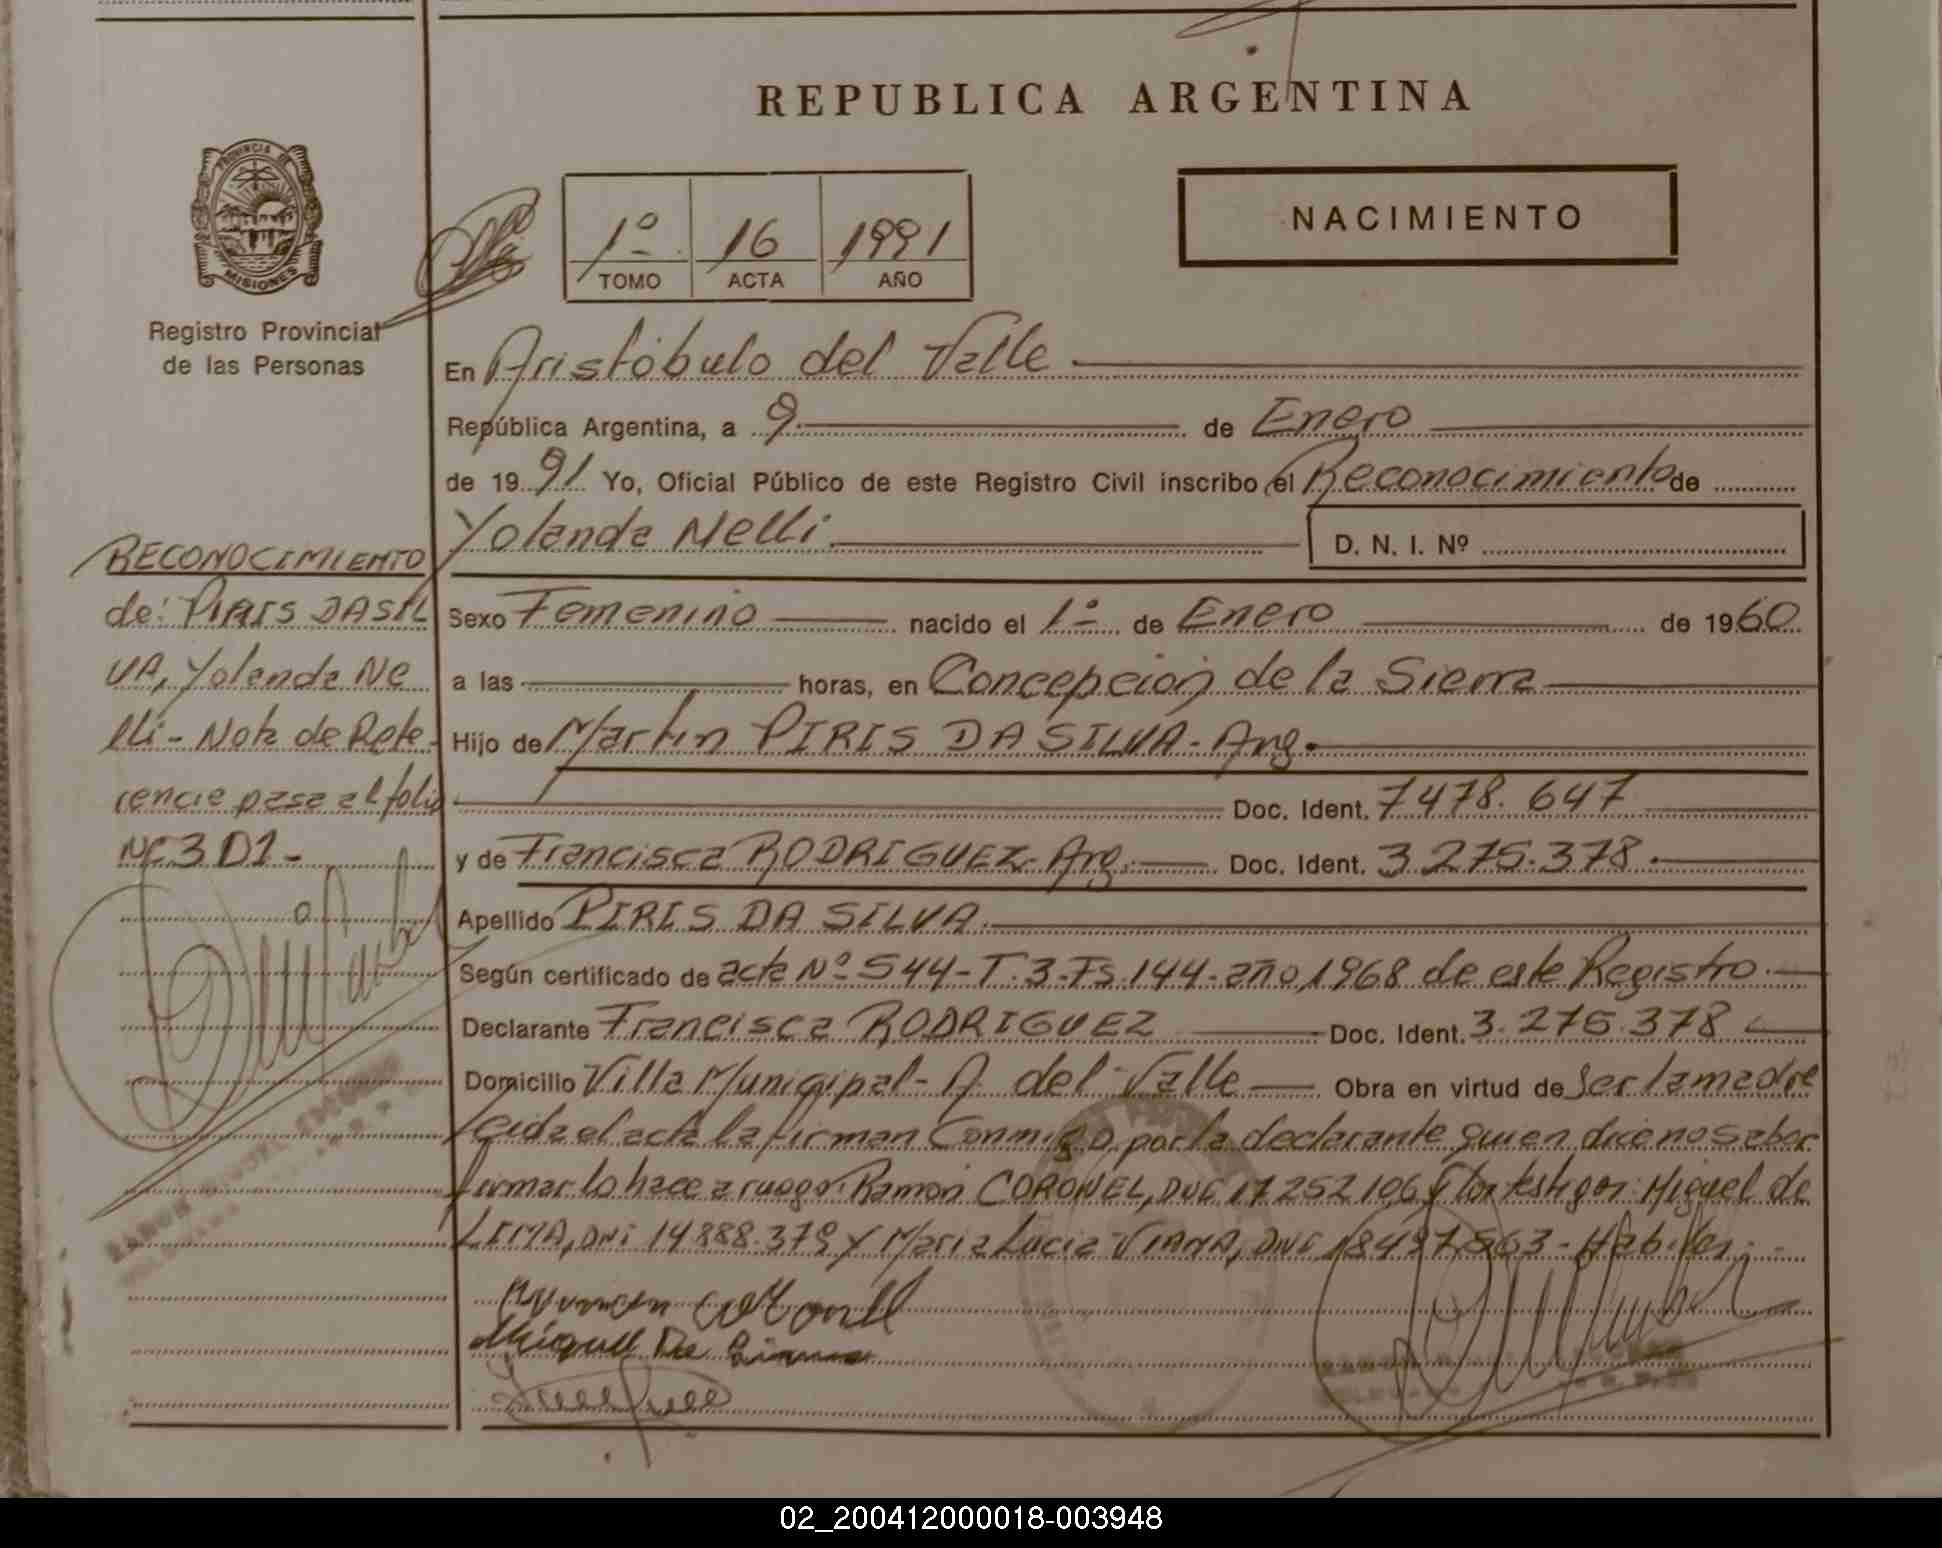 REPUBLICA ARGENTINA
PROVINCIA DE
MISIONES
Registro Provincial
de las Personas
1º 16 1991
TOMO ACTA AÑO
NACIMIENTO
En Aristóbulo del Valle
República Argentina, a 9 de Enero
de 1991 Yo, Oficial Público de este Registro Civil inscribo el Reconocimiento de
Yolanda Nelli D. N. I. Nº
Sexo Femenino nacido el 1º de Enero de 1960
a las horas, en Concepción de la Sierra
Hijo de Martin PIRIS DA SILVA - Arg.
Doc. Ident. 7478.647
y de Francisca RODRIGUEZ - Arg. Doc. Ident. 3.275.378.
Apellido PIRIS DA SILVA.
Según certificado de acta Nº 544 - T. 3 - Fs. 144 - año 1968 de este Registro.
Declarante Francisca RODRIGUEZ Doc. Ident. 3.275.378
Domicilio Villa Municipal - A. del Valle Obra en virtud de ser la madre
Leida el acta la firman Conmigo, por la declarante quien dice no saber
firmar lo hace a ruego: Ramón CORONEL, DNI 17252106 y Por testigos: Miguel de
LIMA, DNI 14888.379 y Maria Lucia VIANA, DNI 18497563 - Habiles.
Miguel De Lima
RECONOCIMIENTO
de: PIRIS DA SIL
VA, Yolanda Ne
lli - Nota de Refe-
rencia pasa al folio
Nº 301 -
02_200412000018-003948